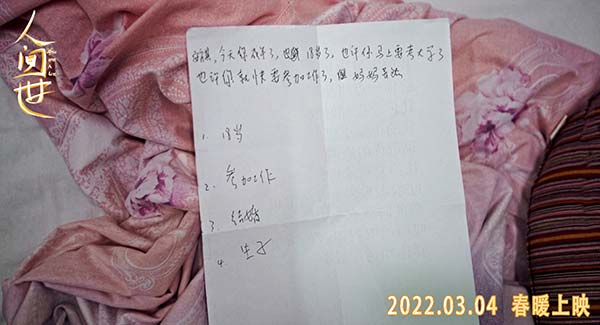 人间世
今天你成年了，也就18岁了，也许你马上要考大学了
也许你就快要参加工作了，但妈妈
1. 18岁
2. 参加工作
3. 结婚
4. 生子
2022.03.04 春暖上映